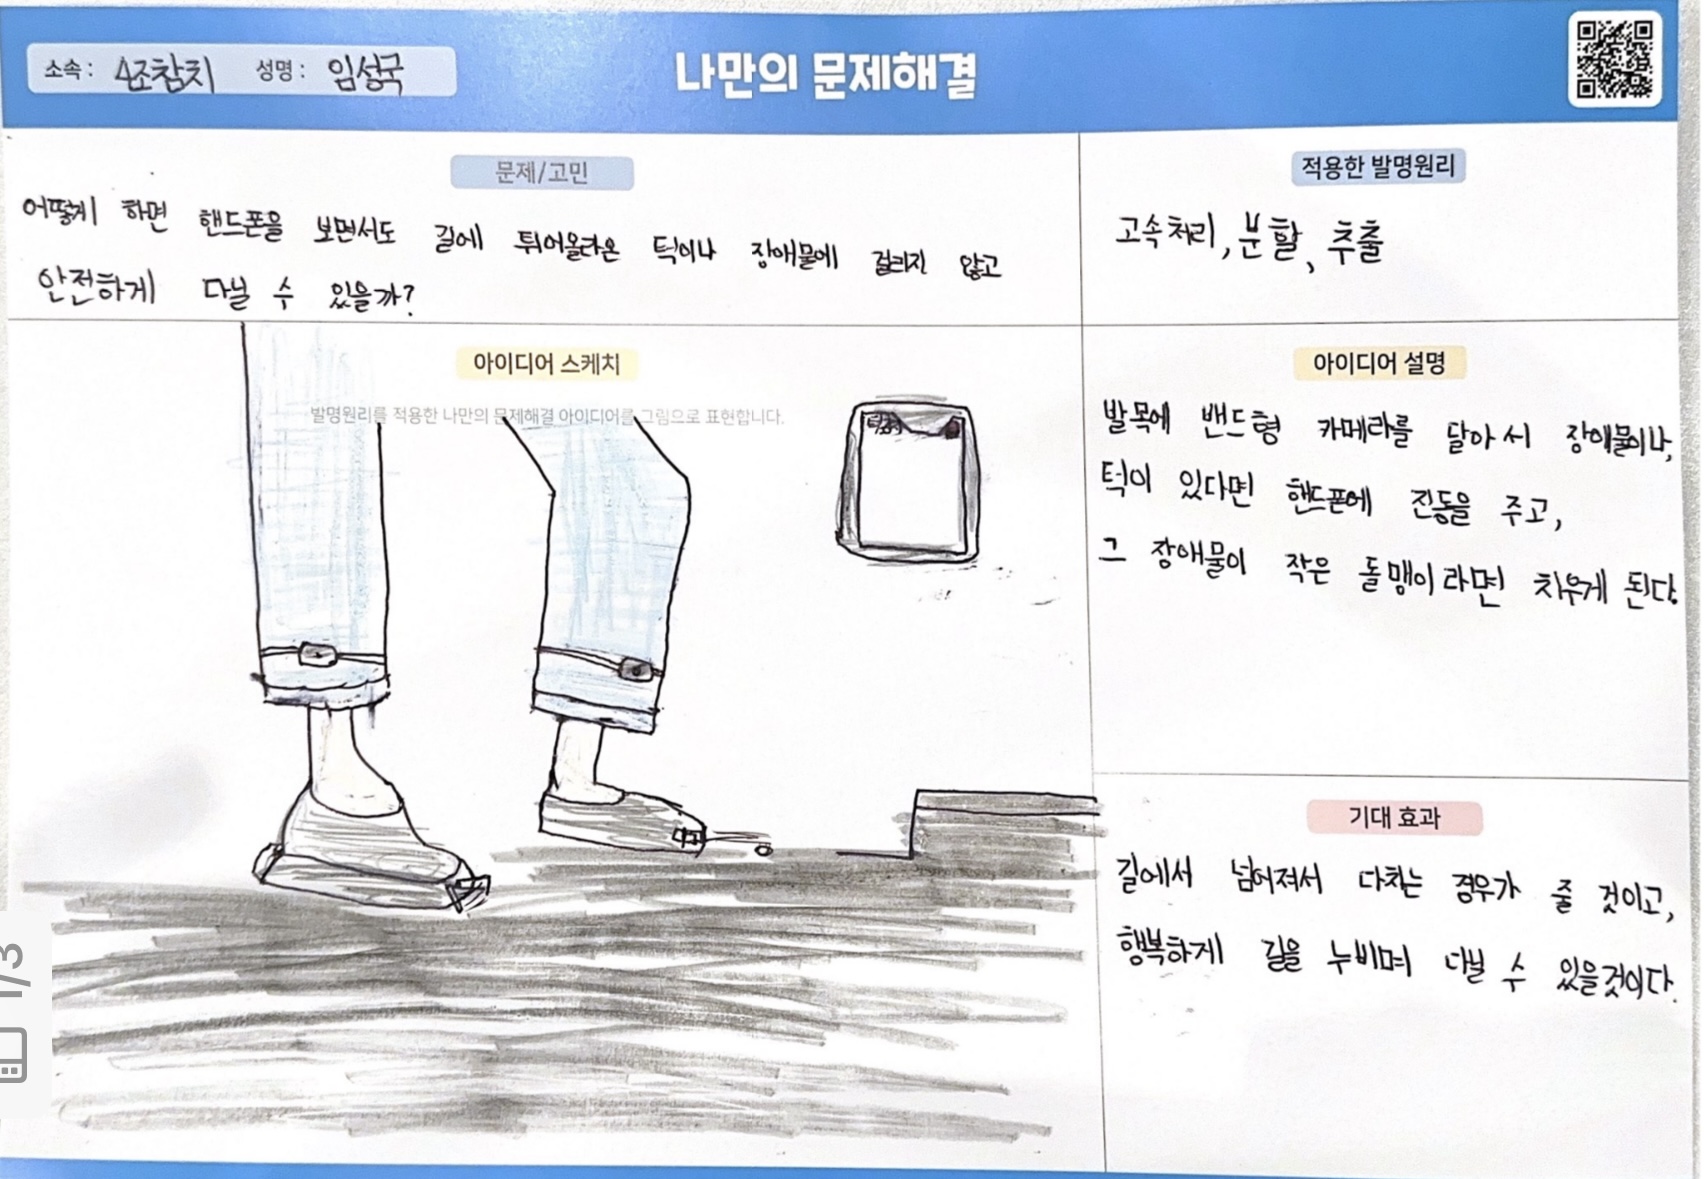 소속 : 4조참치 성명 : 임성국
나만의 문제해결
문제/고민
어떻게 하면 핸드폰을 보면서도 길에 튀어올라온 턱이나 장애물에 걸리지 않고
안전하게 다닐 수 있을까?
적용한 발명원리
고속처리, 분할, 추출
아이디어 스케치
발명원리를 적용한 나만의 문제해결 아이디어를 그림으로 표현합니다.
아이디어 설명
발목에 밴드형 카메라를 달아서 장애물이나,
턱이 있다면 핸드폰에 진동을 주고,
그 장애물이 작은 돌맹이라면 치우게 된다.
기대 효과
길에서 넘어져서 다치는 경우가 줄 것이고,
행복하게 길을 누비며 다닐 수 있을것이다.
1/3